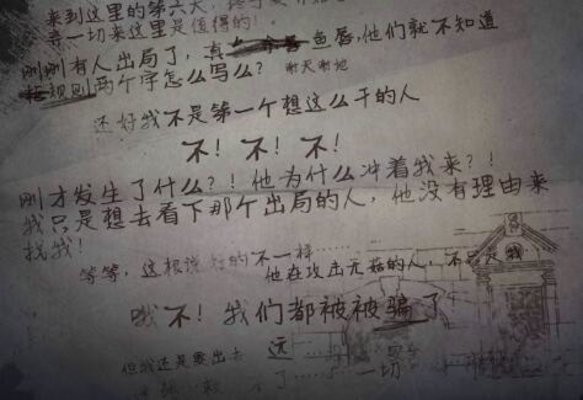 来到这里的第六天，终于
弃一切来这里是值得的！。
刚刚有人出局了，真 鱼唇,他们就不知道
规则两个字怎么写么？ 谢天谢地
还好我不是第一个想这么干的人
不！不！不！
刚才发生了什么？！他为什么冲着我来？！
我只是想去看下那个出局的人，他没有理由来
找我！
等等，这跟说好的不一样……
他在攻击无菇的人，不只是我
哦不！我们都被被骗了
但我还是要出去 远……
了…… 一切